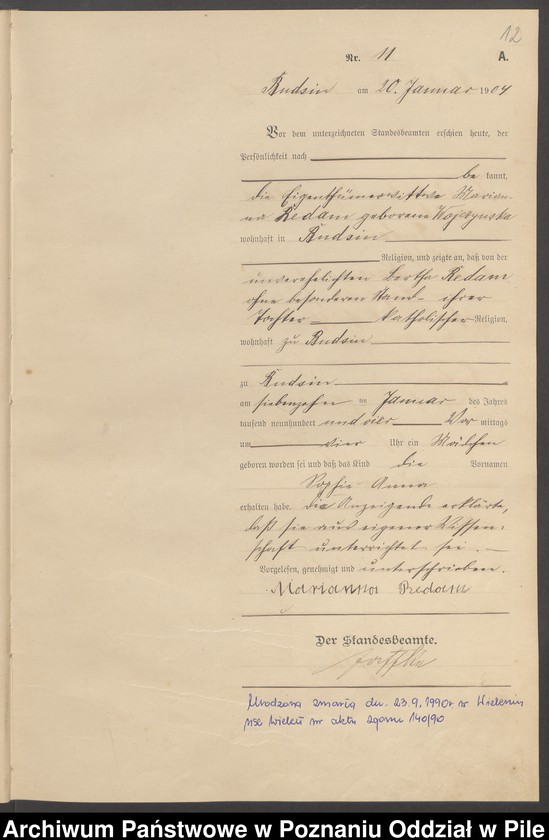 12
Nr. 11 A.
Rudsin am 20. Januar 1904
Vor dem unterzeichneten Standesbeamten erschien heute, der
Persönlichkeit nach
be kannt,
die Eigenthümerwittwe Marian-
na Redam geborene
wohnhaft in Rudsin
Religion, und zeigte an, daß von der
unverehelichten Bertha Redam
ohne besonderen Stand ihrer
Tochter katholischer Religion,
wohnhaft zu Rudsin
zu Rudsin
am siebenzehn ten Januar des Jahres
tausend neunhundert und vier Vor mittags
um vier Uhr ein Mädchen
geboren worden sei und daß das Kind die Vornamen
Sophie Anna
erhalten habe. Die Anzeigende erklärte,
daß sie aus eigener Wissen-
schaft unterrichtet sei.
Vorgelesen, genehmigt und unterschrieben.
Marianna Redam
Der Standesbeamte.
Urodzona zmarła dn. 23.9.1990r w Wieleniu
USC Wieleń nr aktu zgonu 140/90
Archiwum Państwowe w Poznaniu Oddział w Pile